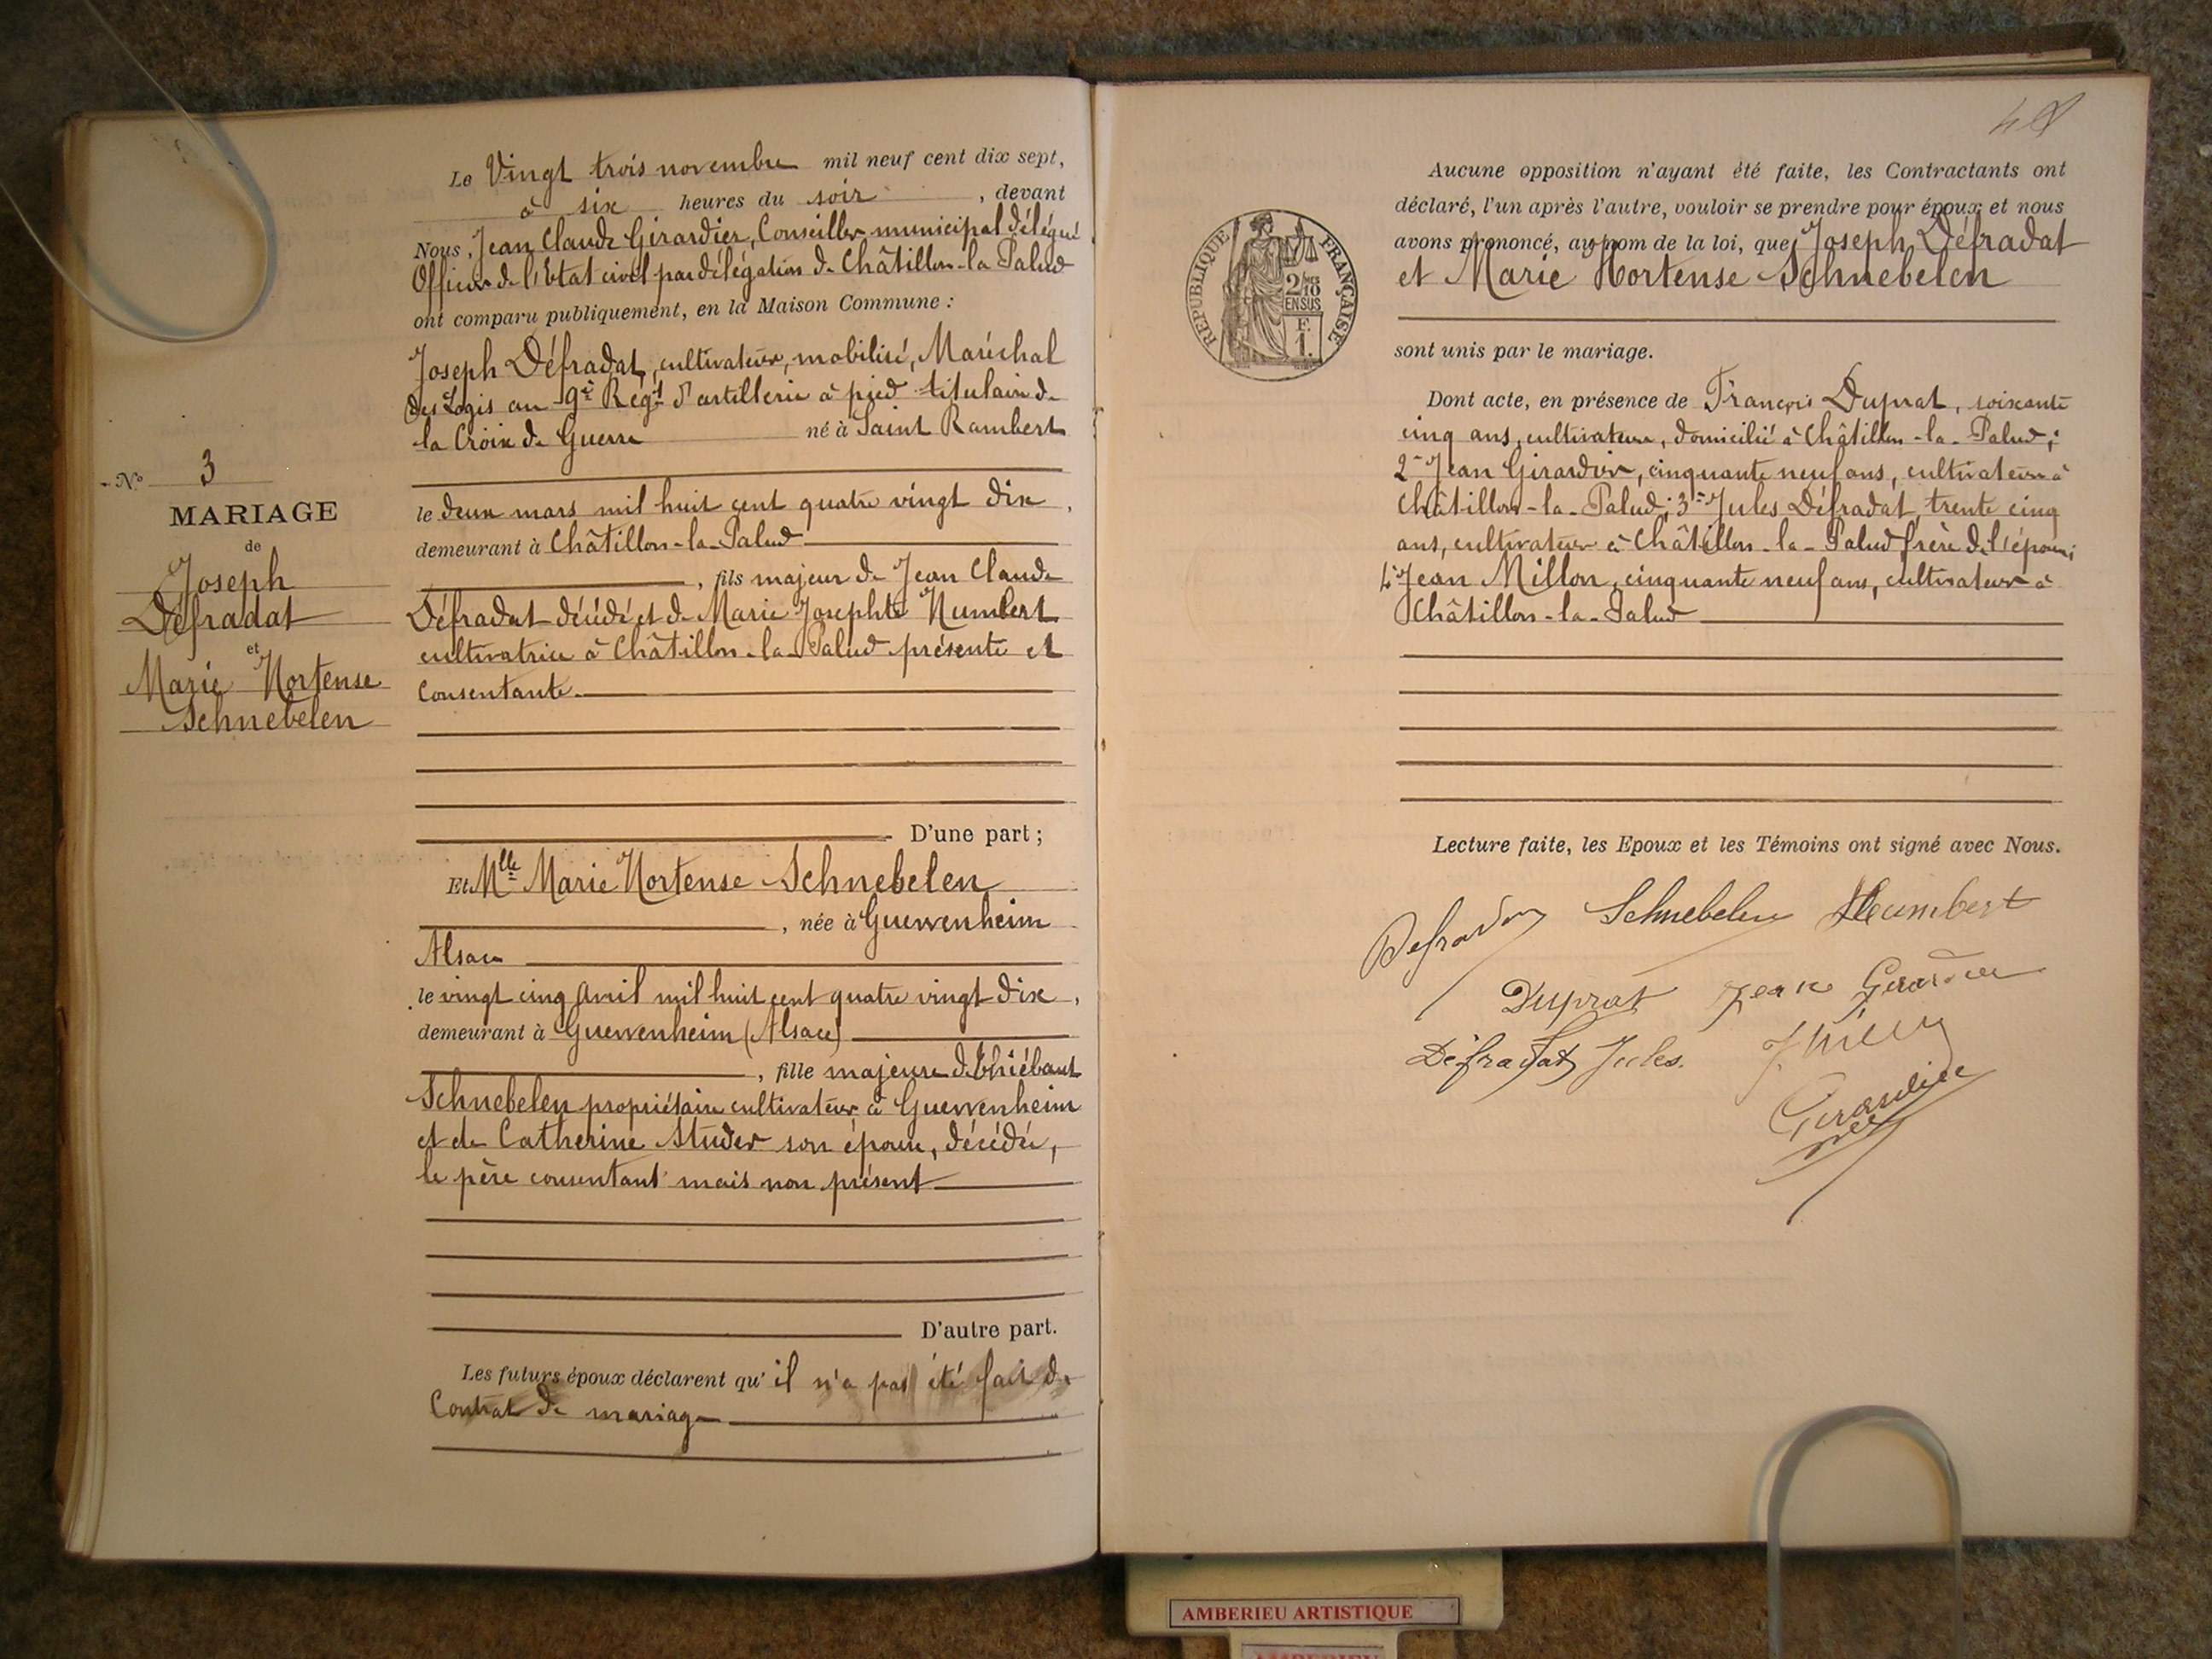 Le Vingt trois novembre mil neuf cent dix sept,
à six heures du soir , devant
Nous, Jean Claude Girardier, Conseiller municipal délégué
Officier de l'Etat civil par délégation de Châtillon-la-Palud
ont comparu publiquement, en la Maison Commune :
Joseph Défradat, cultivateur, mobilisé, Maréchal
des Logis au 9e Régt d'artillerie à pied titulaire de
la Croix de Guerre né à Saint Rambert
le deux mars mil huit cent quatre vingt dix,
demeurant à Châtillon-la-Palud
, fils majeur de Jean Claude
Défradat décédé et de Marie Josephte Humbert
cultivatrice à Châtillon-la-Palud présente et
Consentante.
D'une part ;
Et Mlle Marie Hortense Schnebelen
, née à Guewenheim
Alsace
le vingt cinq Avril mil huit cent quatre vingt dix,
demeurant à Guewenheim (Alsace)
, fille majeure de Thiébaut
Schnebelen propriétaire cultivateur à Guewenheim
et de Catherine Studer son épouse, décédée,
le père consentant mais non présent
D'autre part.
Les futurs époux déclarent qu'il n'a pas été fait de
Contrat de mariage
No 3
MARIAGE
de
Joseph
Défradat
et
Marie Hortense
Schnebelen
RÉPUBLIQUE FRANÇAISE
2/10
EN SUS
F.
1.
Aucune opposition n'ayant été faite, les Contractants ont
déclaré, l'un après l'autre, vouloir se prendre pour époux et nous
avons prononcé, au nom de la loi, que Joseph Défradat
et Marie Hortense Schnebelen
sont unis par le mariage.
Dont acte, en présence de François Duprat, soixante
cinq ans, cultivateur, domicilié à Châtillon-la-Palud;
2° Jean Girardier, cinquante neuf ans, cultivateur à
Châtillon-la-Palud; 3° Jules Défradat, trente cinq
ans, cultivateur à Châtillon-la-Palud frère de l'époux;
4° Jean Millon, cinquante neuf ans, cultivateur à
Châtillon-la-Palud
Lecture faite, les Epoux et les Témoins ont signé avec Nous.
Schnebelen Humbert
Duprat Jean
Défradat Jules.
AMBERIEU ARTISTIQUE
AMBERIEU